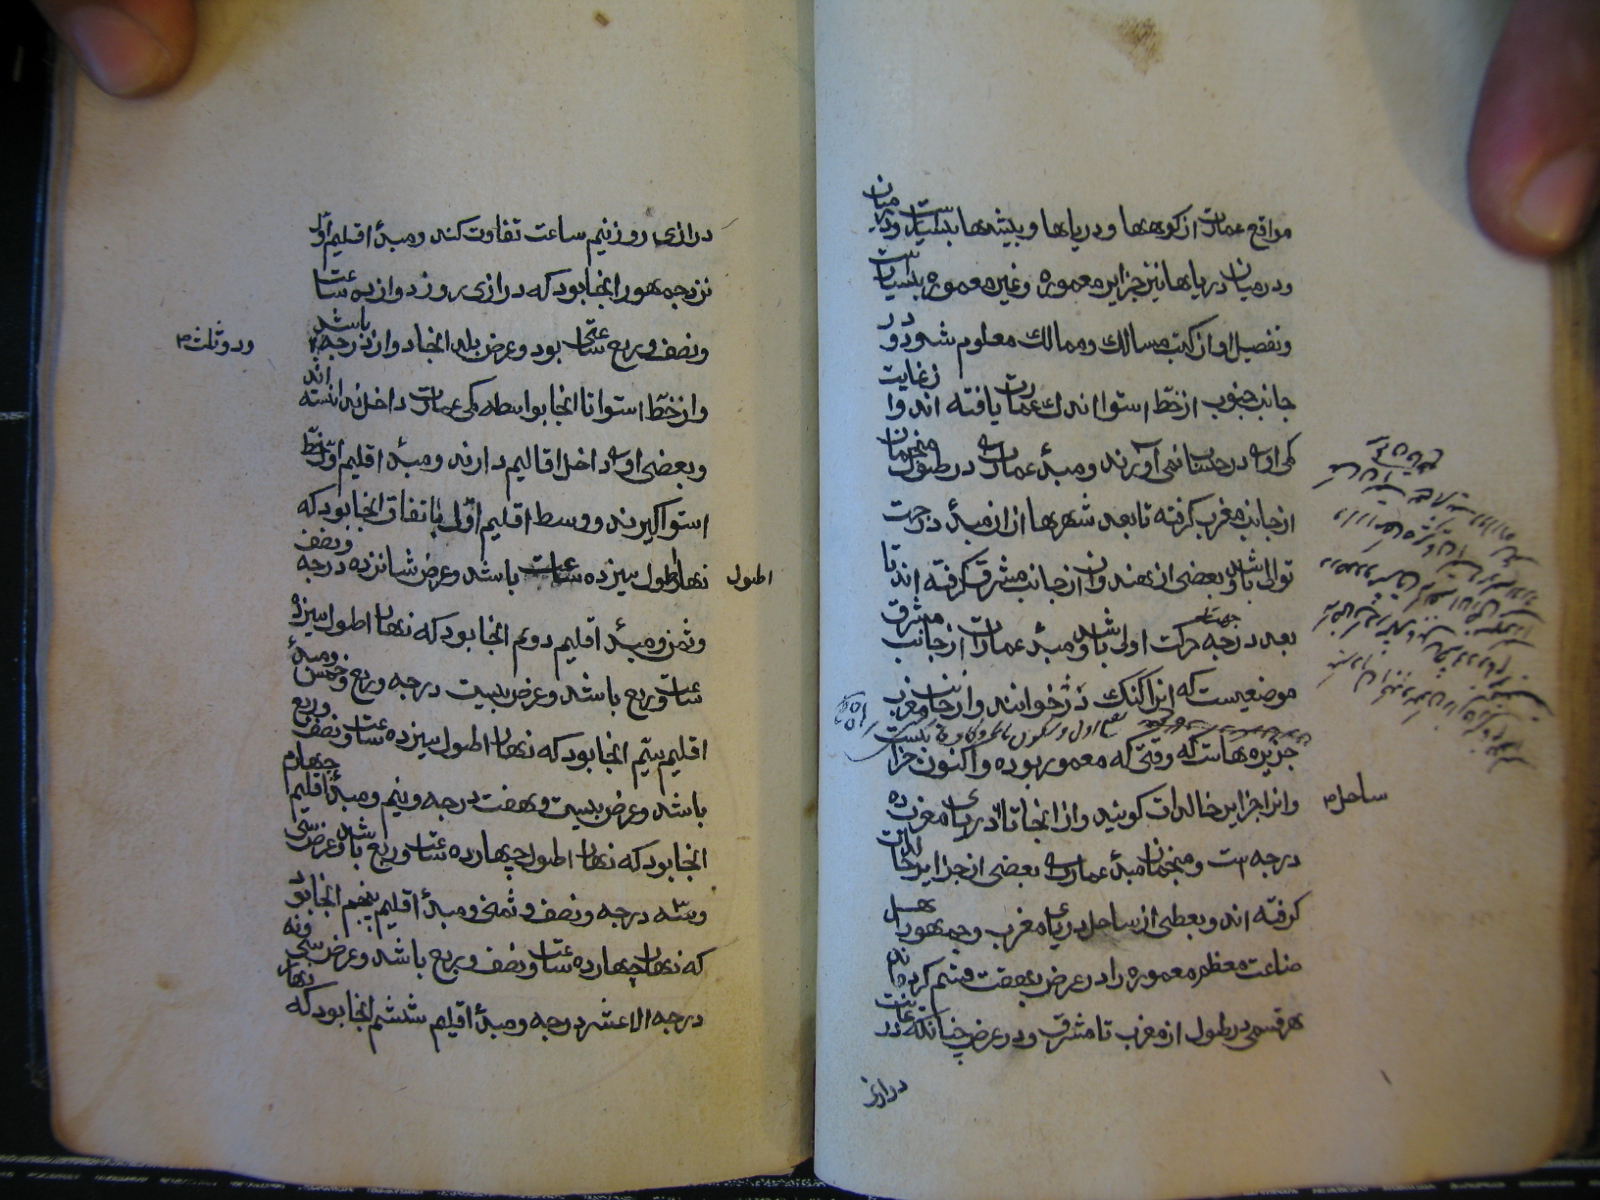 مواقع عمارت از کوهها و دریاها و بیشه‌ها بسیارست و در میان
و در میان دریاها نیز جزایر معموره و غیر معموره بسیارست
و تفصیل او از کتب مسالک و ممالک معلوم شود و در
جانب جنوب از خط استوا اندک عمارت یافته اند و از غایت
کمی او را در حساب نمی آورند و مبدأ عمارت را در طول منجمان
از جانب مغرب گرفته تا بعد شهرها از آن مبدأ در جهت
توالی باشد و بعضی از هند وان از جانب مشرق گرفته اند تا
بعد در جهت حرکت اولی باشد و مبدأ عمارت از جانب مشرق
موضعیست که آنرا کنک دژ خوانند و از جانب مغرب
جزیره هاست که وقتی که معمور بوده و اکنون خراب
و آنرا جزایر خالدات گویند و از انجا تا دریای مغرب ده
ساحل
درجه است و منجمان مبدأ عمارت را بعضی از جزایر خالدات
گرفته اند و بعضی از ساحل دریای مغرب و جمهور اهل
صناعت معظم معموره را در عرض بهفت قسم کرده اند
هر قسمی در طول از مغرب تا مشرق و در عرض چنانکه در غایت
درازی
درازی روز نیم ساعت تفاوت کند و مبدأ اقلیم اول
نزد جمهور انجا بود که درازی روز دوازده ساعت
و نصف و ربع ساعتی بود و عرض بلد انجا دوازده درجه باشد
و دو ثلث
و از خط استوا تا انجا بواسطه کمی عمارت داخل ندانسته اند
و بعضی او را داخل اقالیم دارند و مبدأ اقلیم اول خط
استوا گیرند و وسط اقلیم اول باتفاق انجا بود که
نهار اطول سیزده ساعت باشد و عرض شانزده درجه و نصف
اطول
و ثمن و مبدأ اقلیم دوم انجا بود که نهار اطول سیزده
ساعت و ربع باشد و عرض بیست درجه و ربع و خمس و مبدأ
اقلیم سیم انجا بود که نهار اطول سیزده ساعت و نصف و ربع
باشد و عرض بیست و هفت درجه و نیم و مبدأ اقلیم چهارم
انجا بود که نهار اطول چهارده ساعت و ربع باشد و عرض سی
و سه درجه و نصف و ثمنی و مبدأ اقلیم پنجم انجا بود
که نهار چهارده ساعت و نصف و ربع باشد و عرض سی و نه
درجه الا عشر درجه و مبدأ اقلیم ششم انجا بود که نهار